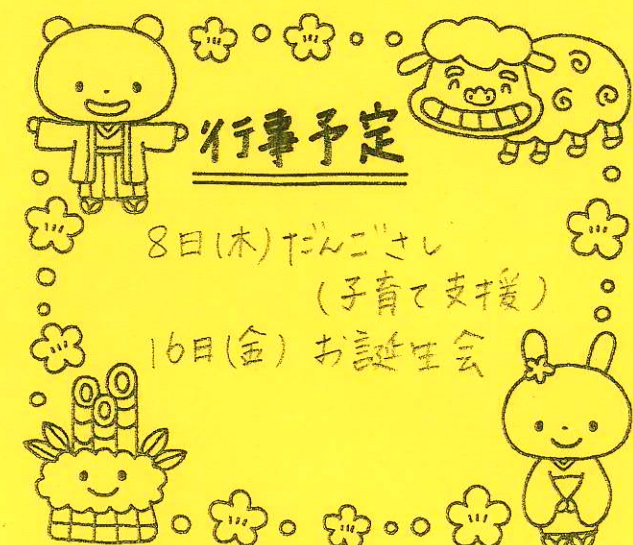 行事予定
8日(木)だんごさし
(子育て支援)
16日(金) お誕生会